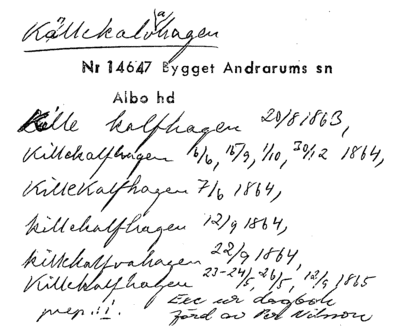 Källekalvahagen
Nr 14647 Bygget Andrarums sn
Albo hd
Kille kalfhagen 20/8 1863,
Killekalfhagen 6/6, 15/9, 1/10, 30/12 1864,
Killekalfhagen 7/6 1864,
killekalfhagen 12/9 1864,
killekalfvahagen 22/9 1864,
Killekalfhagen 23-24/5, 26/5, 12/9 1865
prep. :i:. Exc ur dagbok
förd av Per Nilsson